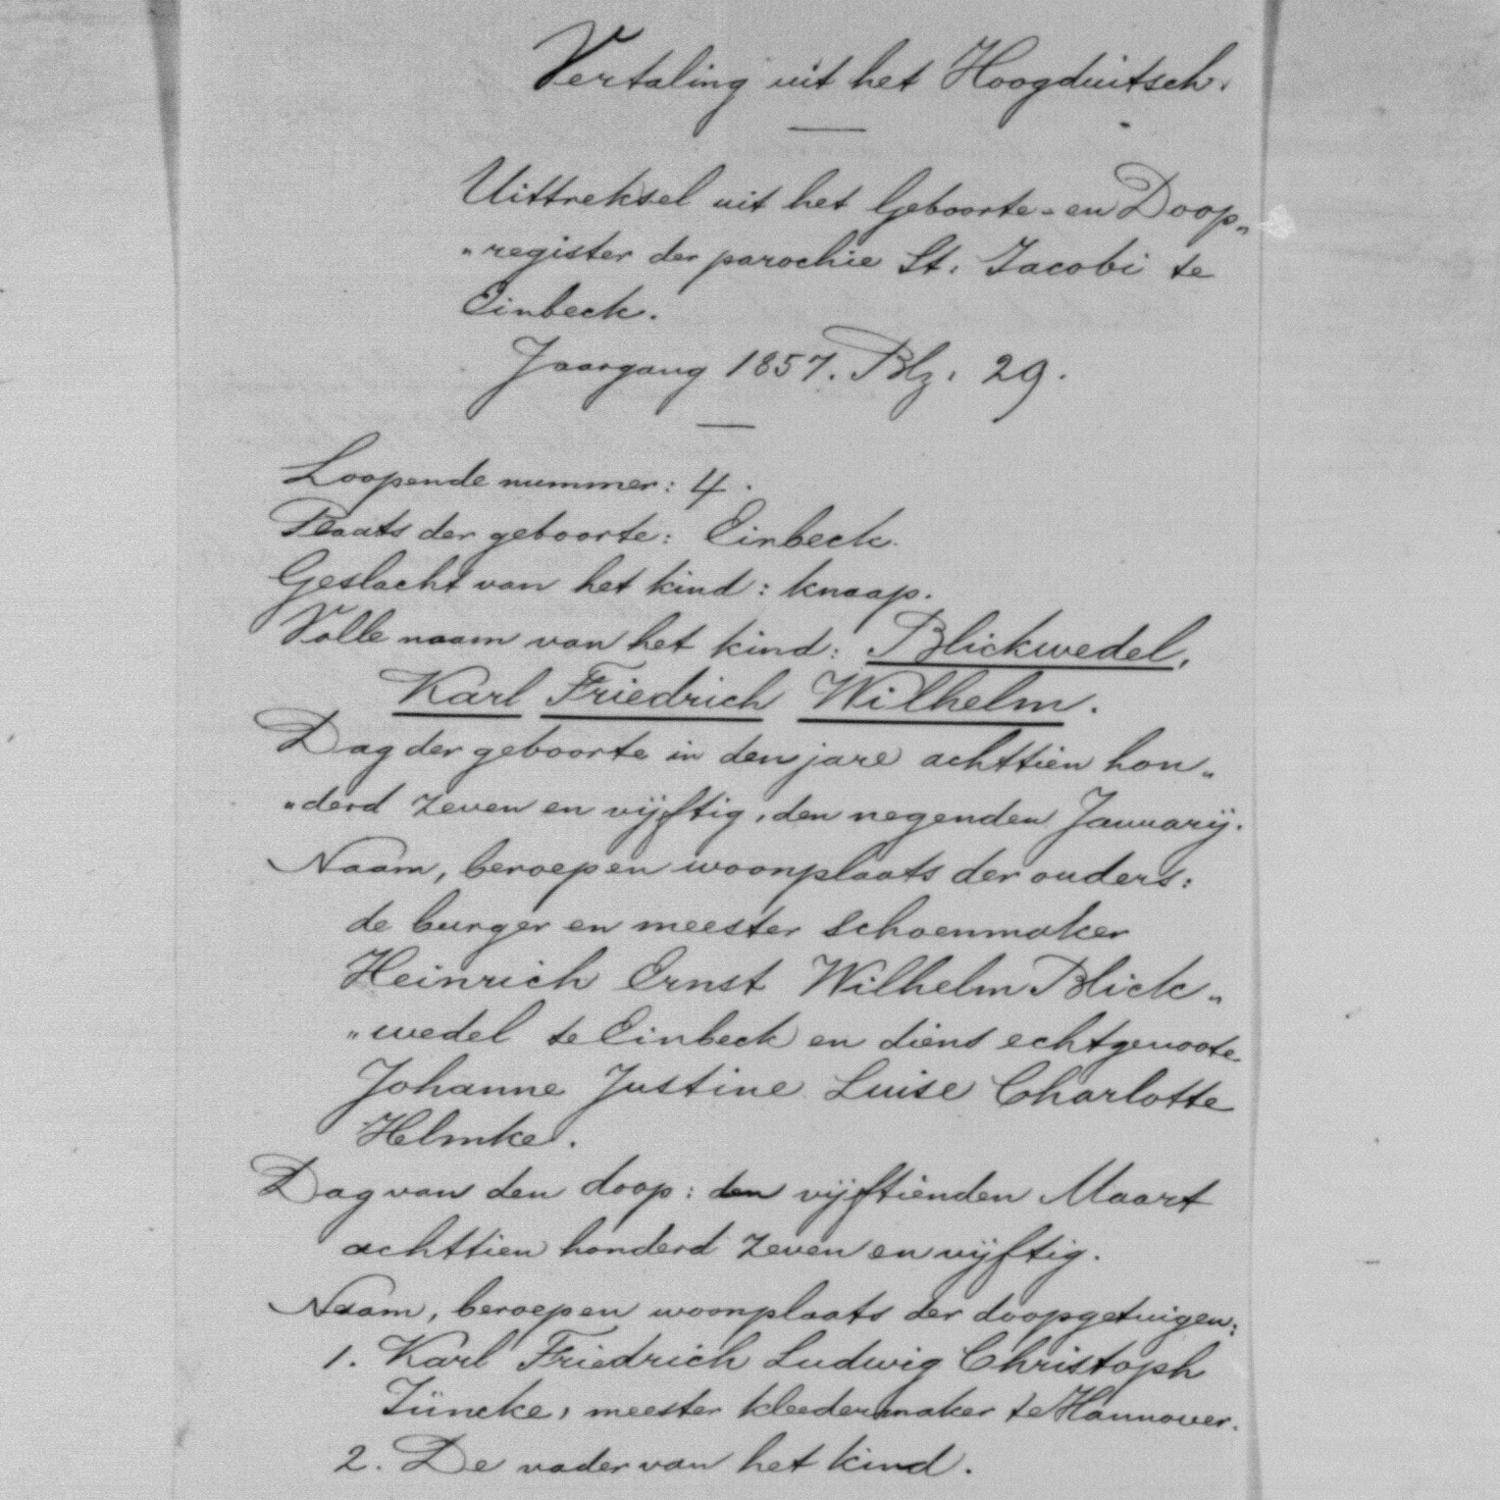 Vertaling uit het Hoogduitsch.
Uittreksel uit het Geboorte- en Doop„
„register der parochie St. Jacobi te
Einbeck.
Jaargang 1857. Blz. 29.
Loopende nummer: 4.
Plaats der geboorte: Einbeck.
Geslacht van het kind: knaap.
Volle naam van het kind: Blickwedel,
Karl Friedrich Wilhelm.
Dag der geboorte in den jare achttien hon„
„derd zeven en vijftig, den negenden Januarij.
Naam, beroep en woonplaats der ouders:
de burger en meester schoenmaker
Heinrich Ernst Wilhelm Blick„
„wedel te Einbeck en diens echtgenoote
Johanne Justine Luise Charlotte
Helmke.
Dag van den doop: den vijftienden Maart
achttien honderd zeven en vijftig.
Naam, beroep en woonplaats der doopgetuigen:
1. Karl Friedrich Ludwig Christoph
Züncke, meester kleedermaker te Hannover.
2. De vader van het kind.